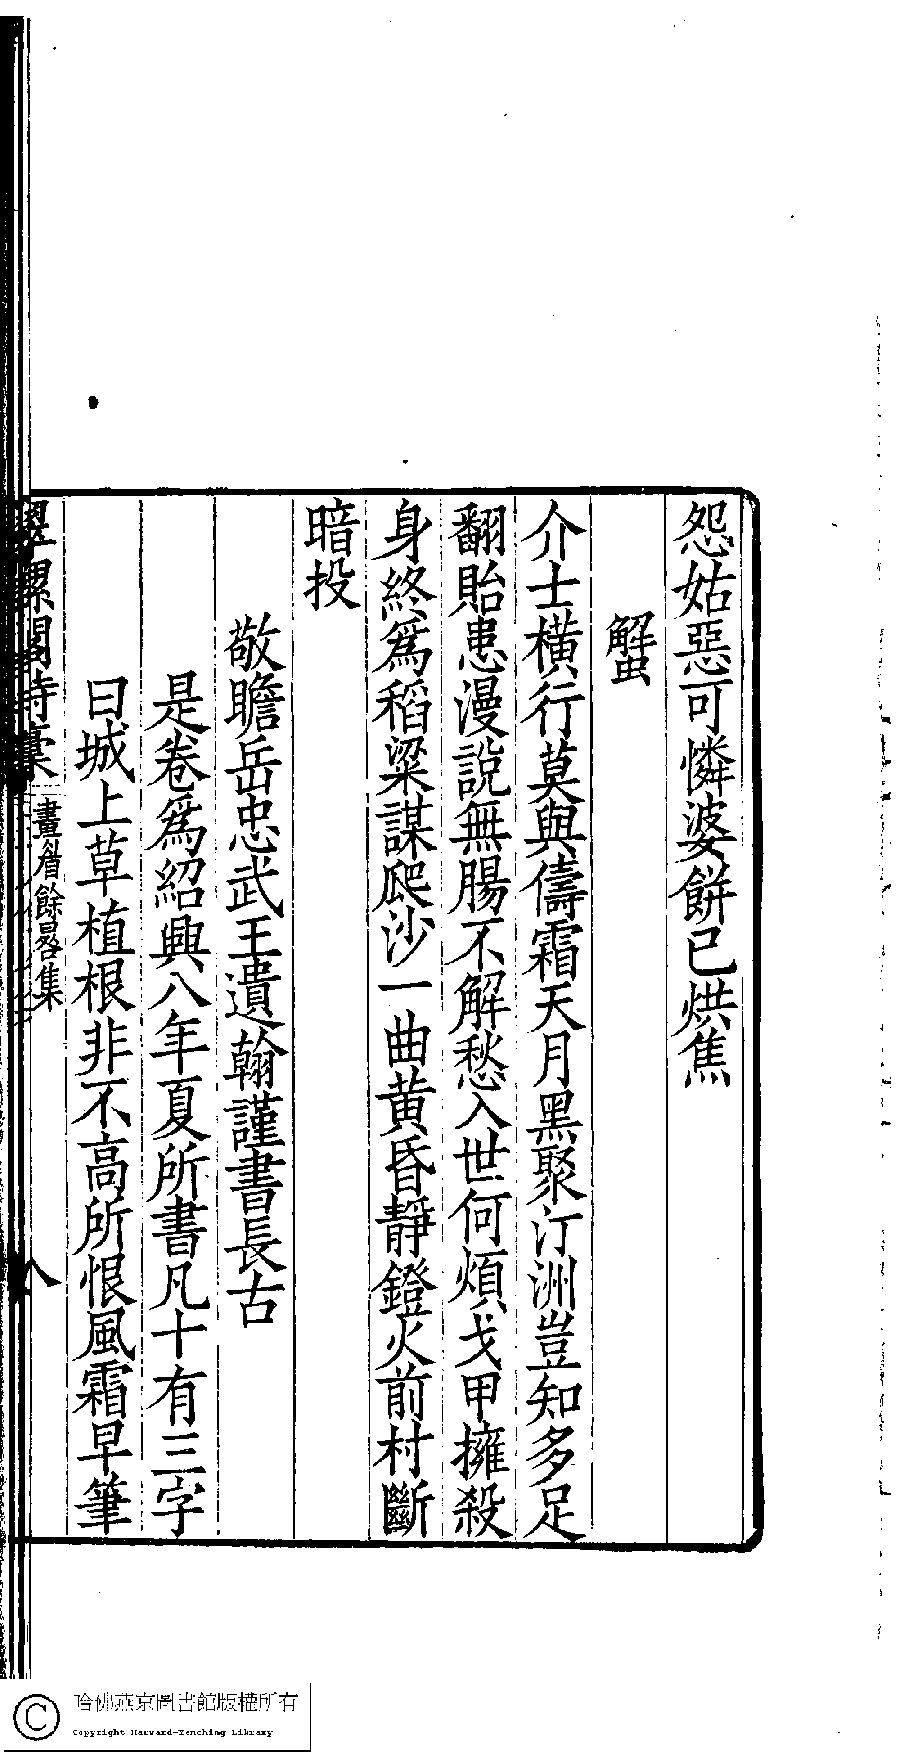 怨姑惡可憐婆餅已烘焦
蟹
介士橫行莫與儔霜天月黑聚汀洲豈知多足
翻貽患漫說無腸不解愁入世何煩戈甲擁殺
身終爲稻粱謀爬沙一曲黄昏靜鐙火前村斷
暗投
敬瞻岳忠武王遺翰謹書長古
是卷爲紹興八年夏所書凡十有三字
曰城上草植根非不高所恨風霜早筆
閣詩橐
餘晷集
八
哈佛燕京圖書館版權所有
Copyright Harvard-Yenching Library